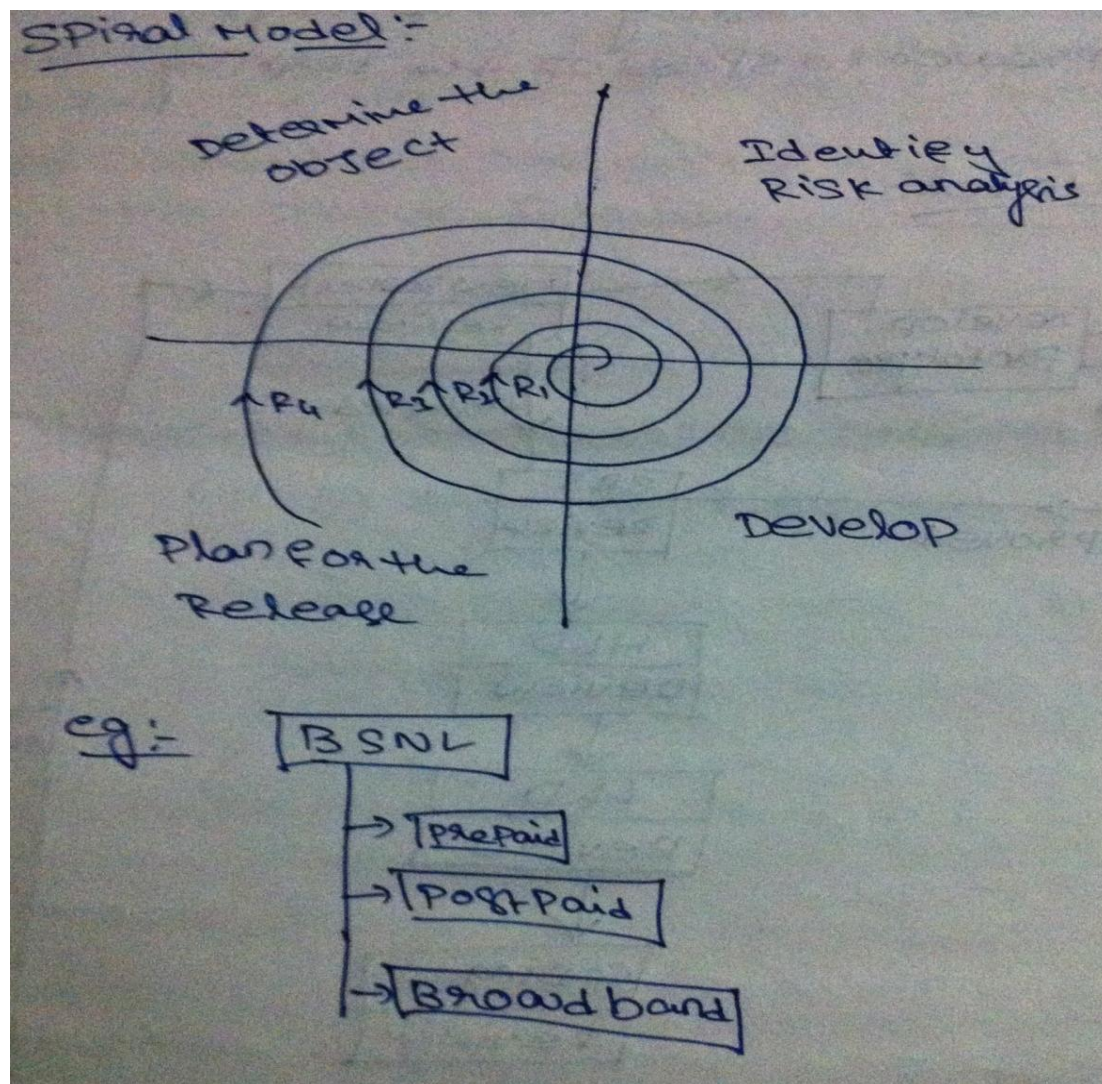 SPiral Model :-
Determine the
object
Identify
Risk analysis
R4
R3
R2
R1
Develop
Plan for the
Release
eg :-
BSNL
prepaid
postpaid
Broad band